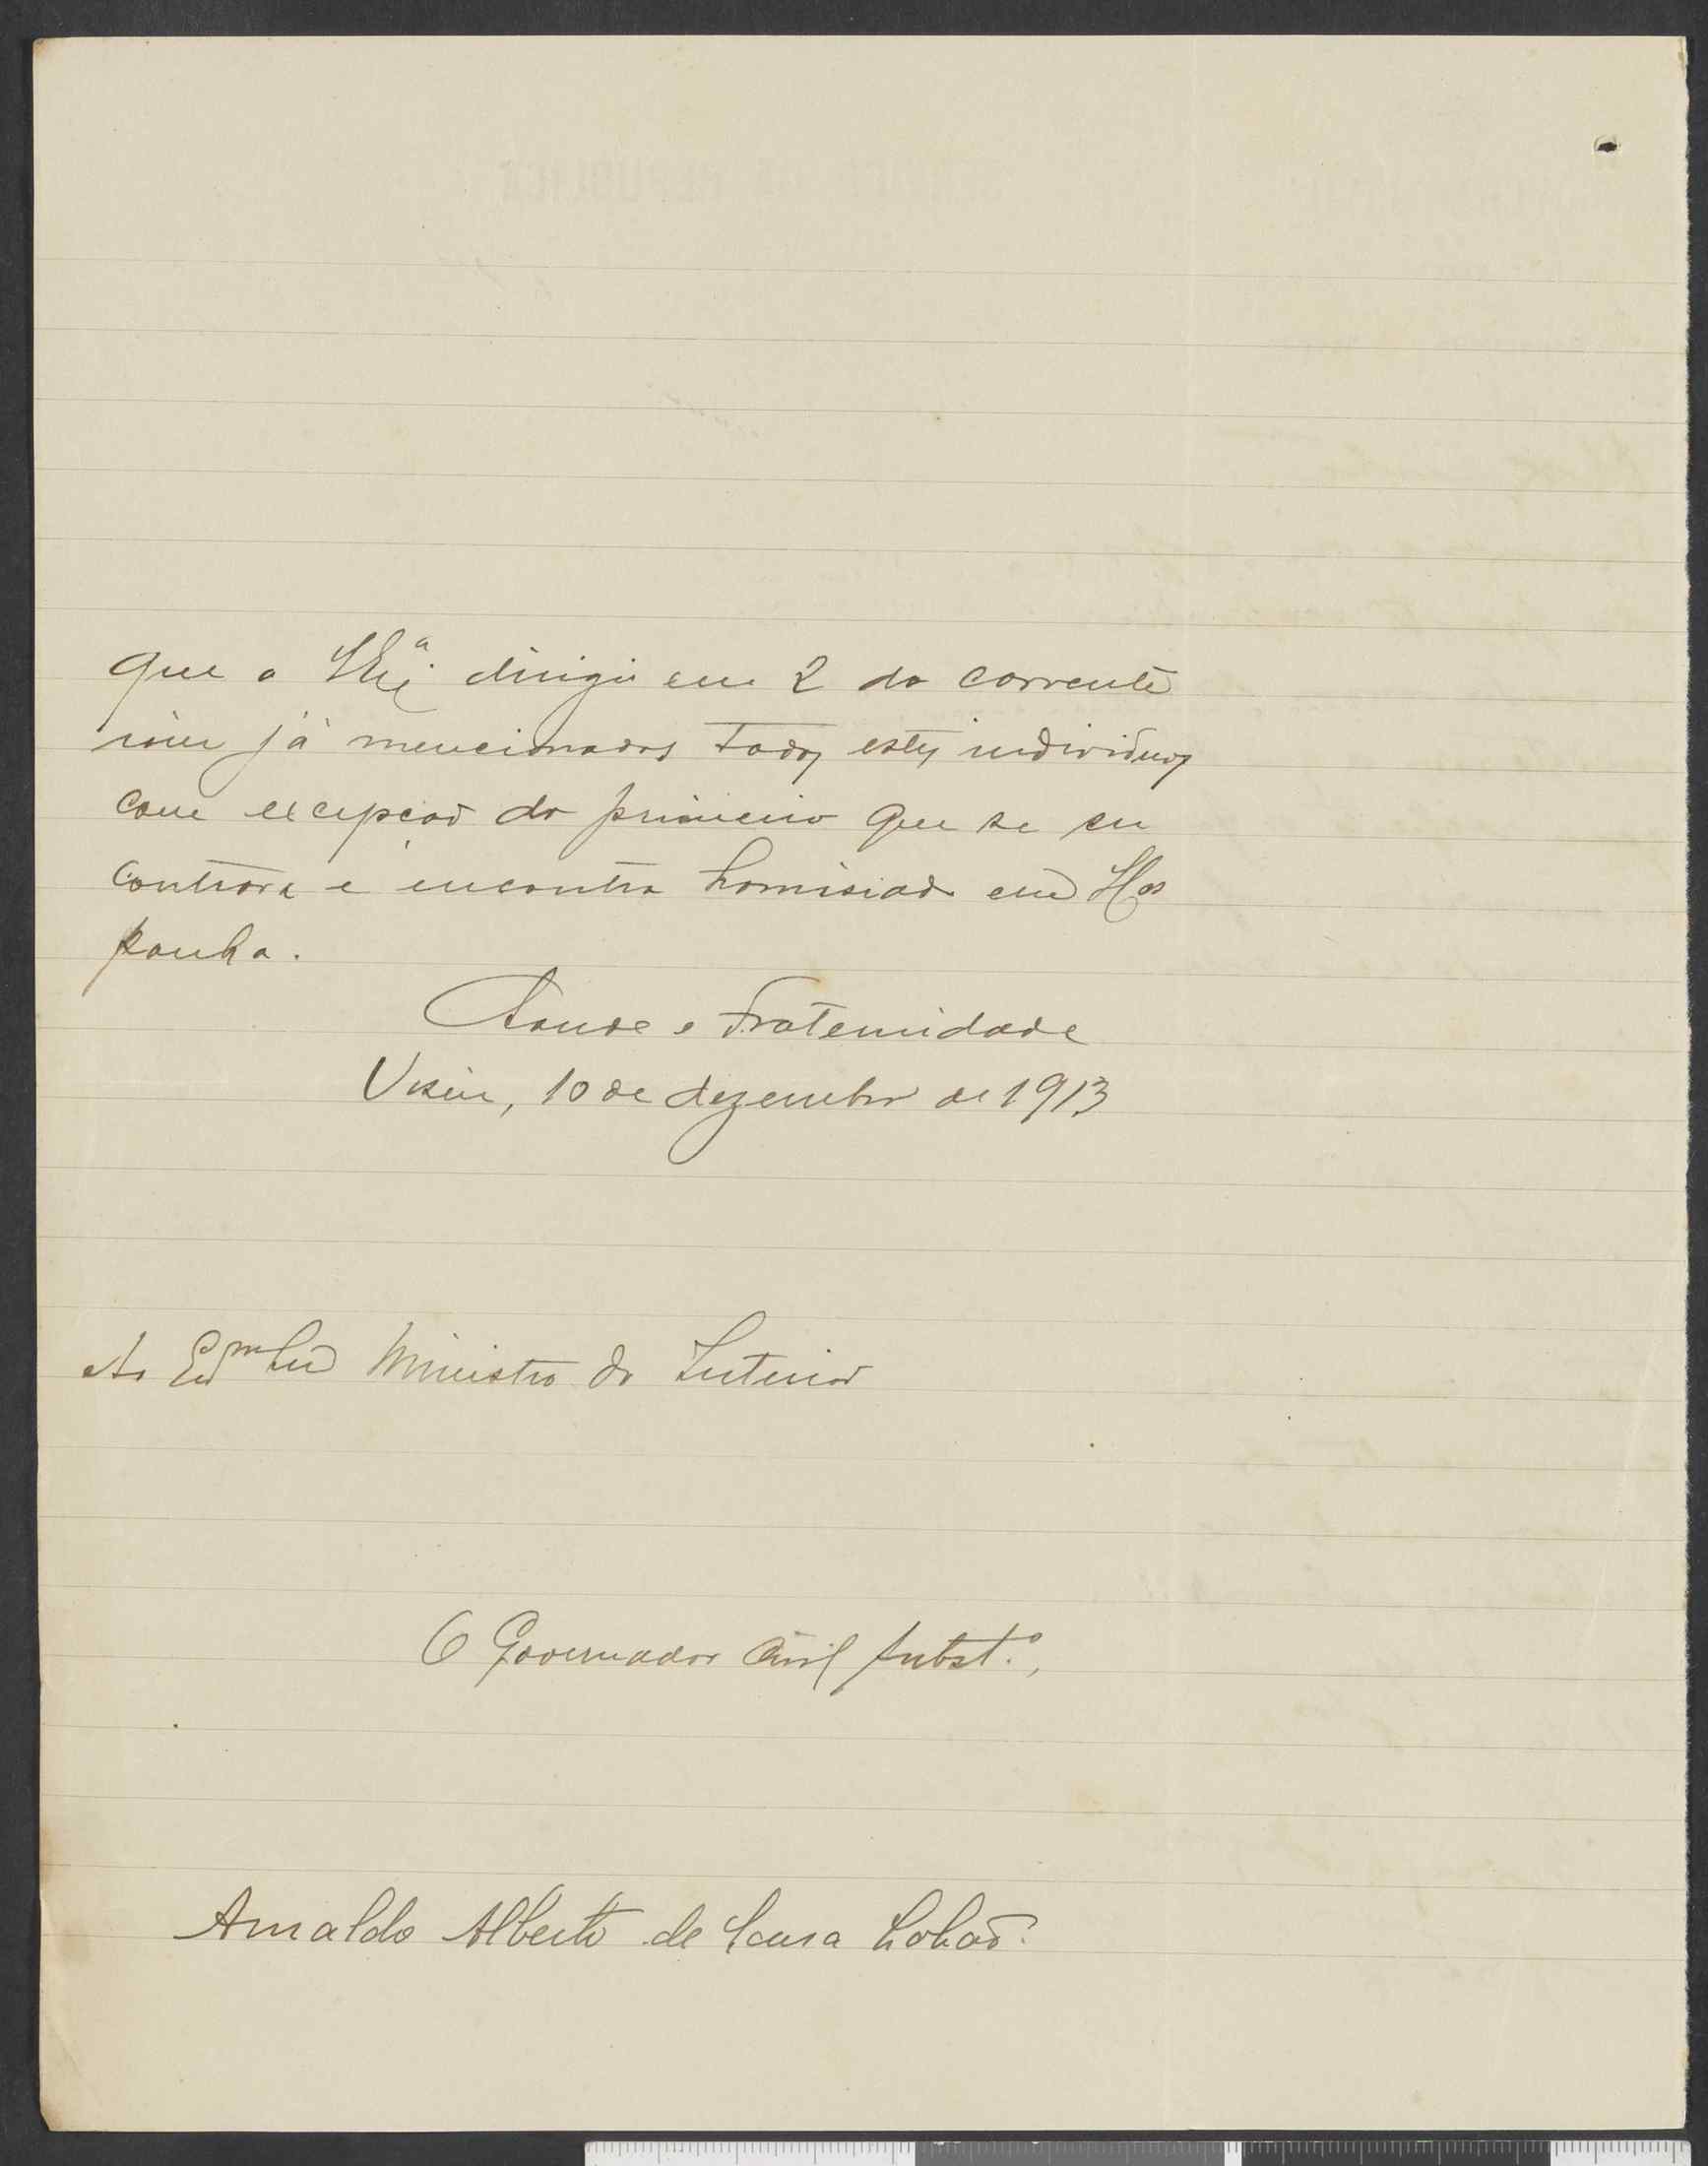 que a V. Ex.ª dirigi em 2 do corrente
vem já mencionados todos estes individuos
com excepção do primeiro que se en
contrava e encontra homisiado em Hes
panha.
Saude e Fraternidade
Viseu, 10 de dezembro de 1913
Ao Ex.mo Snr Ministro do Interior
O Governador Civil Subst.º,
Arnaldo Alberto de Sousa Lobão.